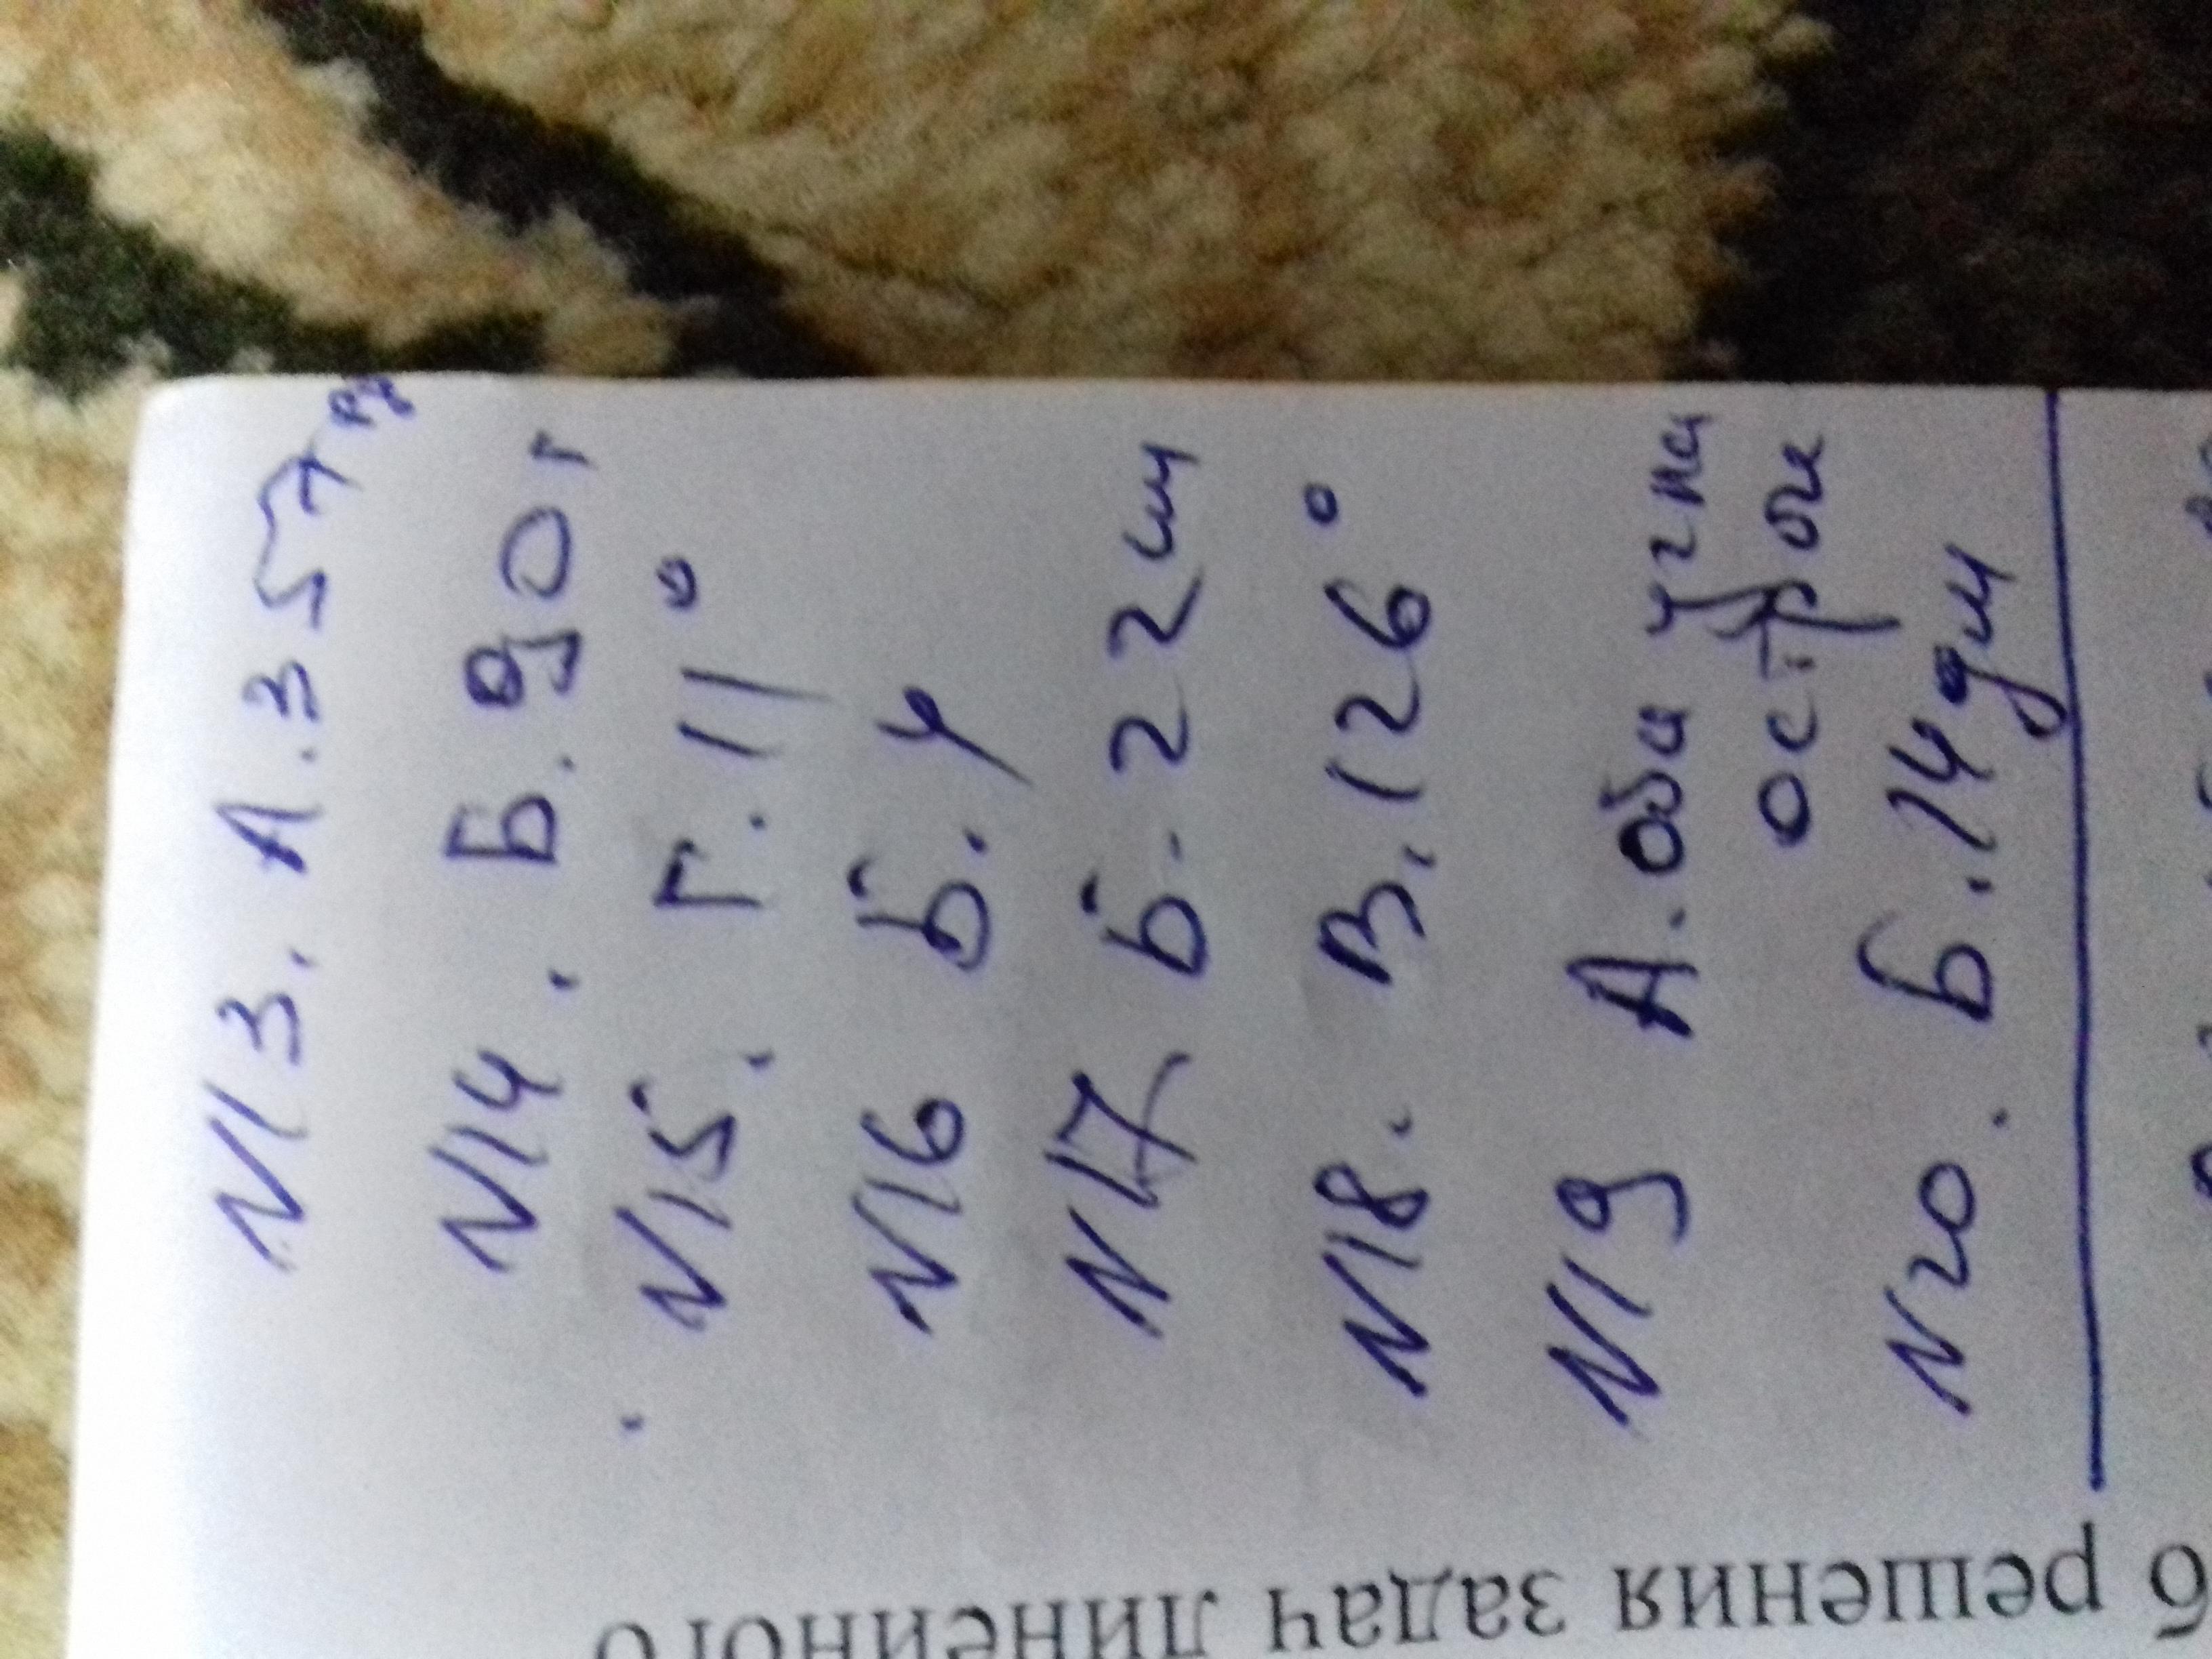 N13. А. 357
N14. Б. 90 г
N15. Г. 11
N16 Б. 4
N17 Б. 22 см
N18. В. 126°
N19 А. оба угла
острые
N20. Б. 14 дм
б решения задач линейного